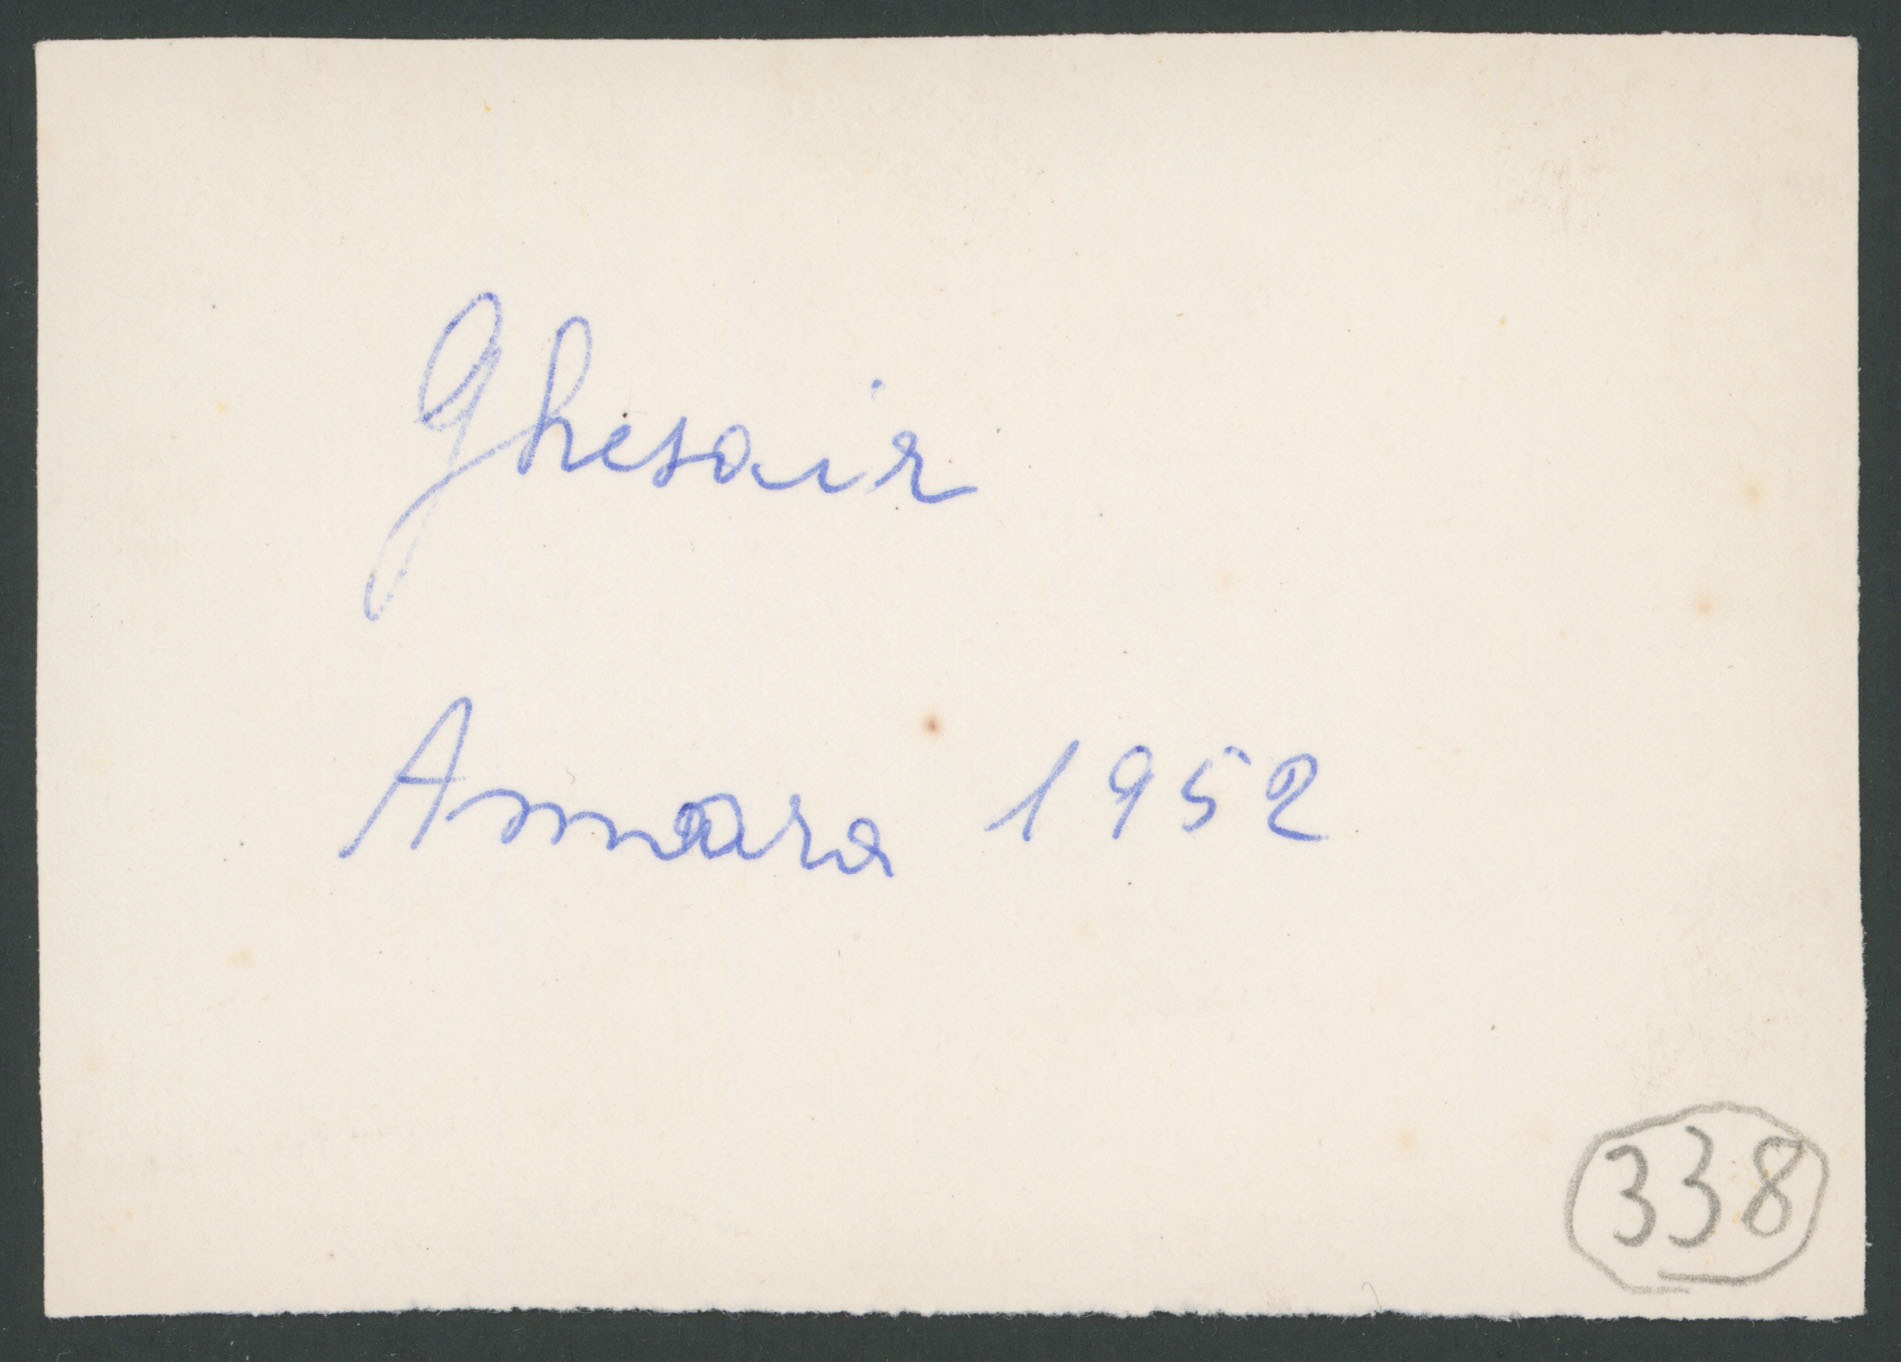 Ghesair
Asmara 1952
338